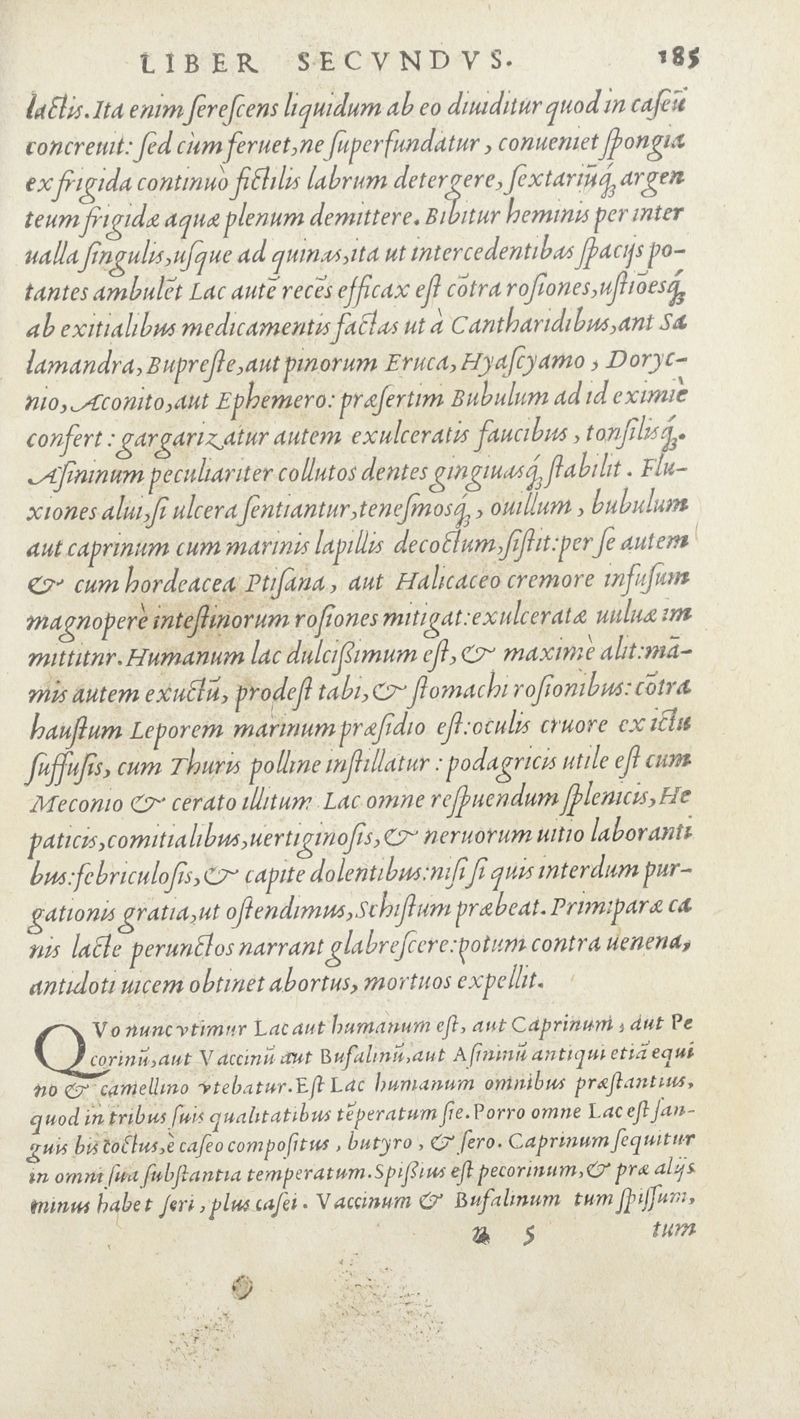 LIBER SECVNDVS. 185
lactis. Ita enim ſereſcens liquidum ab eo diuiditur quod in caſeū
concreuit: ſed cùm feruet, ne ſuperfundatur, conueniet ſpongia
ex frigida continuò fictilis labrum detergere, ſextariūq́; argen
teum frigidæ aquæ plenum demittere. Bibitur heminis per inter
ualla ſingulis, uſque ad quinas, ita ut intercedentibas ſpacijs po-
tantes ambulēt Lac autē recēs efficax eſt cōtra roſiones, uſtiōesq́;
ab exitialibus medicamentis factas ut à Cantharidibus, ant Sa
lamandra, Bupreſte, aut pinorum Eruca, Hyaſcyamo, Doryc-
nio, Aconito, aut Ephemero: præſertim Bubulum ad id eximiè
confert: gargarizatur autem exulceratis faucibus, tonſilisq́;.
Aſininum peculiariter collutos dentes gingiuasq́; ſtabilit. Flu-
xiones alui, ſi ulcera ſentiantur, teneſmosq́;, ouillum, bubulum
aut caprinum cum marinis lapillis decoctum, ſiſtit: per ſe autem
& cum hordeacea Ptiſana, aut Halicaceo cremore infuſum
magnoperè inteſtinorum roſiones mitigat: exulceratæ uuluæ im
mittitnr. Humanum lac dulciſsimum eſt, & maximè alit: mā-
mis autem exuctū, prodeſt tabi, & ſtomachi roſionibus: cōtra
hauſtum Leporem marinum præſidio eſt: oculis cruore ex ictu
ſuffuſis, cum Thuris polline inſtillatur: podagricis utile eſt cum
Meconio & cerato illitum Lac omne reſpuendum ſplenicis, He
paticis, comitialibus, uertiginoſis, & neruorum uitio laboranti
bus: febriculoſis, & capite dolentibus: niſi ſi quis interdum pur-
gationis gratia, ut oſtendimus, Schiſtum præbeat. Primiparæ ca
nis lacte perunctos narrant glabreſcere: potum contra uenena,
antidoti uicem obtinet abortus, mortuos expellit.
QVo nunc vtimur Lac aut humanum eſt, aut Caprinum, aut Pe
corinū, aut Vaccinū aut Bufalinū, aut Aſininū antiqui etiā equi
no & camellino vtebatur. Eſt Lac humanum omnibus præſtantius,
quod in tribus ſuis qualitatibus tēperatum ſie. Porro omne Lac eſt ſan-
guis bis coctus, è caſeo compoſitus, butyro, & ſero. Caprinum ſequitur
in omni ſua ſubſtantia temperatum. Spiſsius eſt pecorinum, & præ alijs
minus habet ſeri, plus caſei. Vaccinum & Bufalinum tum ſpiſſum,
5 tum